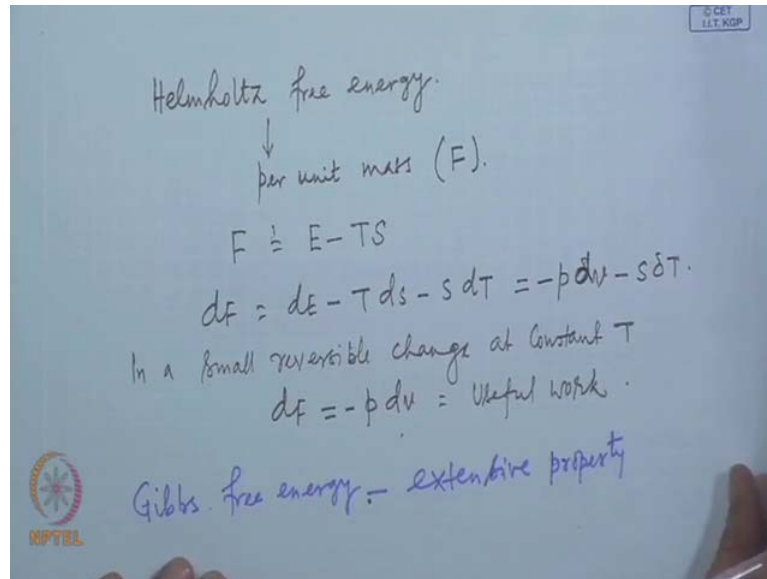 © CET
I.I.T. KGP
Helmholtz free energy.
↓
per unit mass (F).
F ≐ E - TS
dF = dE - T ds - S dT = -p dv - S δT.
In a small reversible change at Constant T
dF = -p dv = Useful work.
Gibbs. free energy. - extensive property
NPTEL